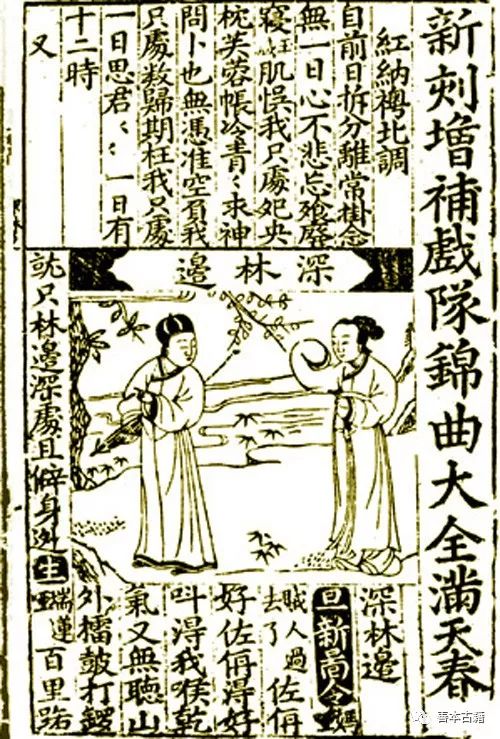 新刻增補戲隊錦曲大全滿天春
紅納襖北調
自前日拆分離常掛念
無一日心不悲忘飧廢
寢尫肌悮我只處妃央
枕芙蓉帳冷青〻求神
問卜也無憑准空負我
只處数歸期枉我只處
一日思君〻〻一日有
十二時
又
深林邊
深林邊
旦新昌令
賊人過去了佐俩
好佐俩淂好
叫淂我喉乾
氣又無聽山
外擂鼓打鑼
就只林邊深處且僻身迯生瑞蓮百里路
善本古籍